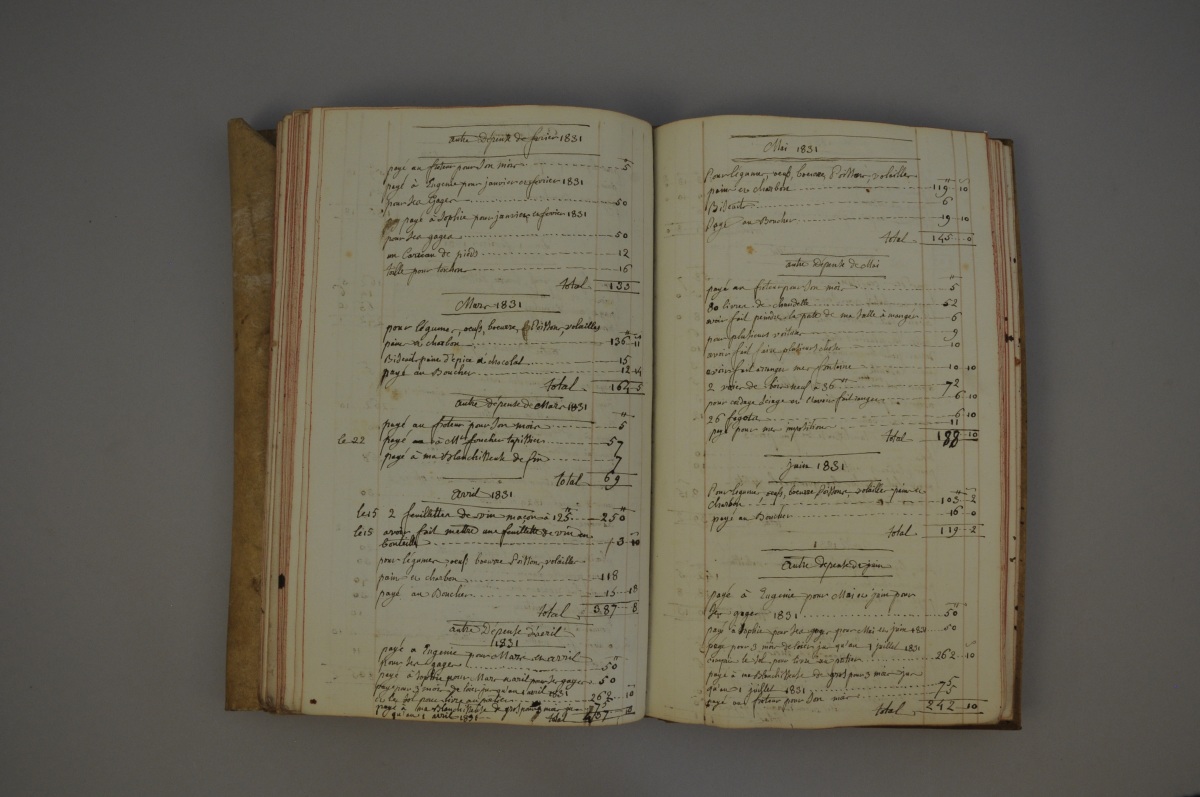 autre dépense de fevrier 1831
payé au froteur pour son mois 5
payé à Eugenie pour janvier et fevrier 1831
pour ses gages 50
payé à Sophie pour janvier et fevrier 1831
pour ses gages 50
un carreau de pieds 12
toille pour torchon 16
total 133
Mars 1831
pour légume, oeufs, beurre, Poisson, volailles
pain et charbon 136 11
Biscuit, pain d'épice et chocolat 15
payé au Boucher 12 14
total 164 5
autre dépense de Mars 1831
payé au froteur pour son mois 5
le 22 payé à Mr foucher tapissier 57
payé à ma Blanchisseuse de fin 7
total 69
avril 1831
le 15 2 feuillettes de vin maçon à 125 250
le 15 avoir fait mettre une feuillette de vin en
bouteille 3 10
pour légumes oeufs beurre Poisson, volaille
pain et charbon 118
payé au Boucher 15 18
total 387 8
autre Dépense d'avril
1831
payé a Eugenie pour Mars et avril
pour ses gages 50
payé à Sophie pour Mars et avril pour ses gages 50
payé pour 3 mois de loyer jusqu'au 1 avril 1831
et le sol pour livre au portier 262 10
payé à ma Blanchisseuse de gros pour 3 mois jus
qu'au 1 avril 1831 75
total 437 10
Mai 1831
Pour légume, oeufs, beurre, Poisson, volailles
pain et charbon 119 10
Biscuits 6
Payé au Boucher 19 10
total 145 0
autre dépense de Mai
payé au froteur pour son mois 5
80 livres de chandelle 52
avoir fait peindre la porte de ma salle à manger 6
pour plusieurs voitures 9
avoir fait faire plusieurs 10
avoir fait arranger mes fontaine 10 10
2 voies de bois neuf à 36 72
pour cordage sciage et l'avoir fait ranger 6 10
26 fagots 6 10
payé pour mes imposition 11
total 188 10
juin 1831
Pour légume, oeufs, beurre Poisson, volailles pain et
charbon 103 2
payé au Boucher 16 0
total 119 2
autre dépense de juin
payé à Eugenie pour Mai et juin pour
ses gages 1831 50
payé à Sophie pour ses gages pour Mai et juin 1831 50
payé pour 3 mois de loyer jusqu'au 1 juillet 1831
compris le sol pour livre au portier 262 10
payé a ma Blanchisseuse de gros pour 3 mois jus
qu'au 1 juillet 1831 75
payé au froteur pour son mois 5
total 242 10